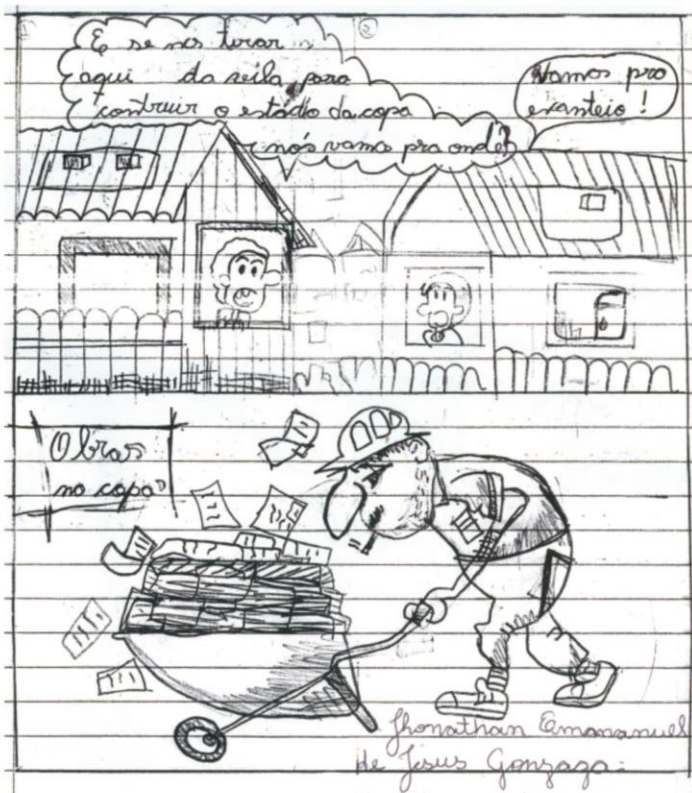 E se nos tirar
aqui da veila para
contruir o estádio da copa
nós vamo pra onde?
Vamos pro
exanteio!
Obras
na copa
Jhonathan Emananuel
de Jesus Gonzaga.